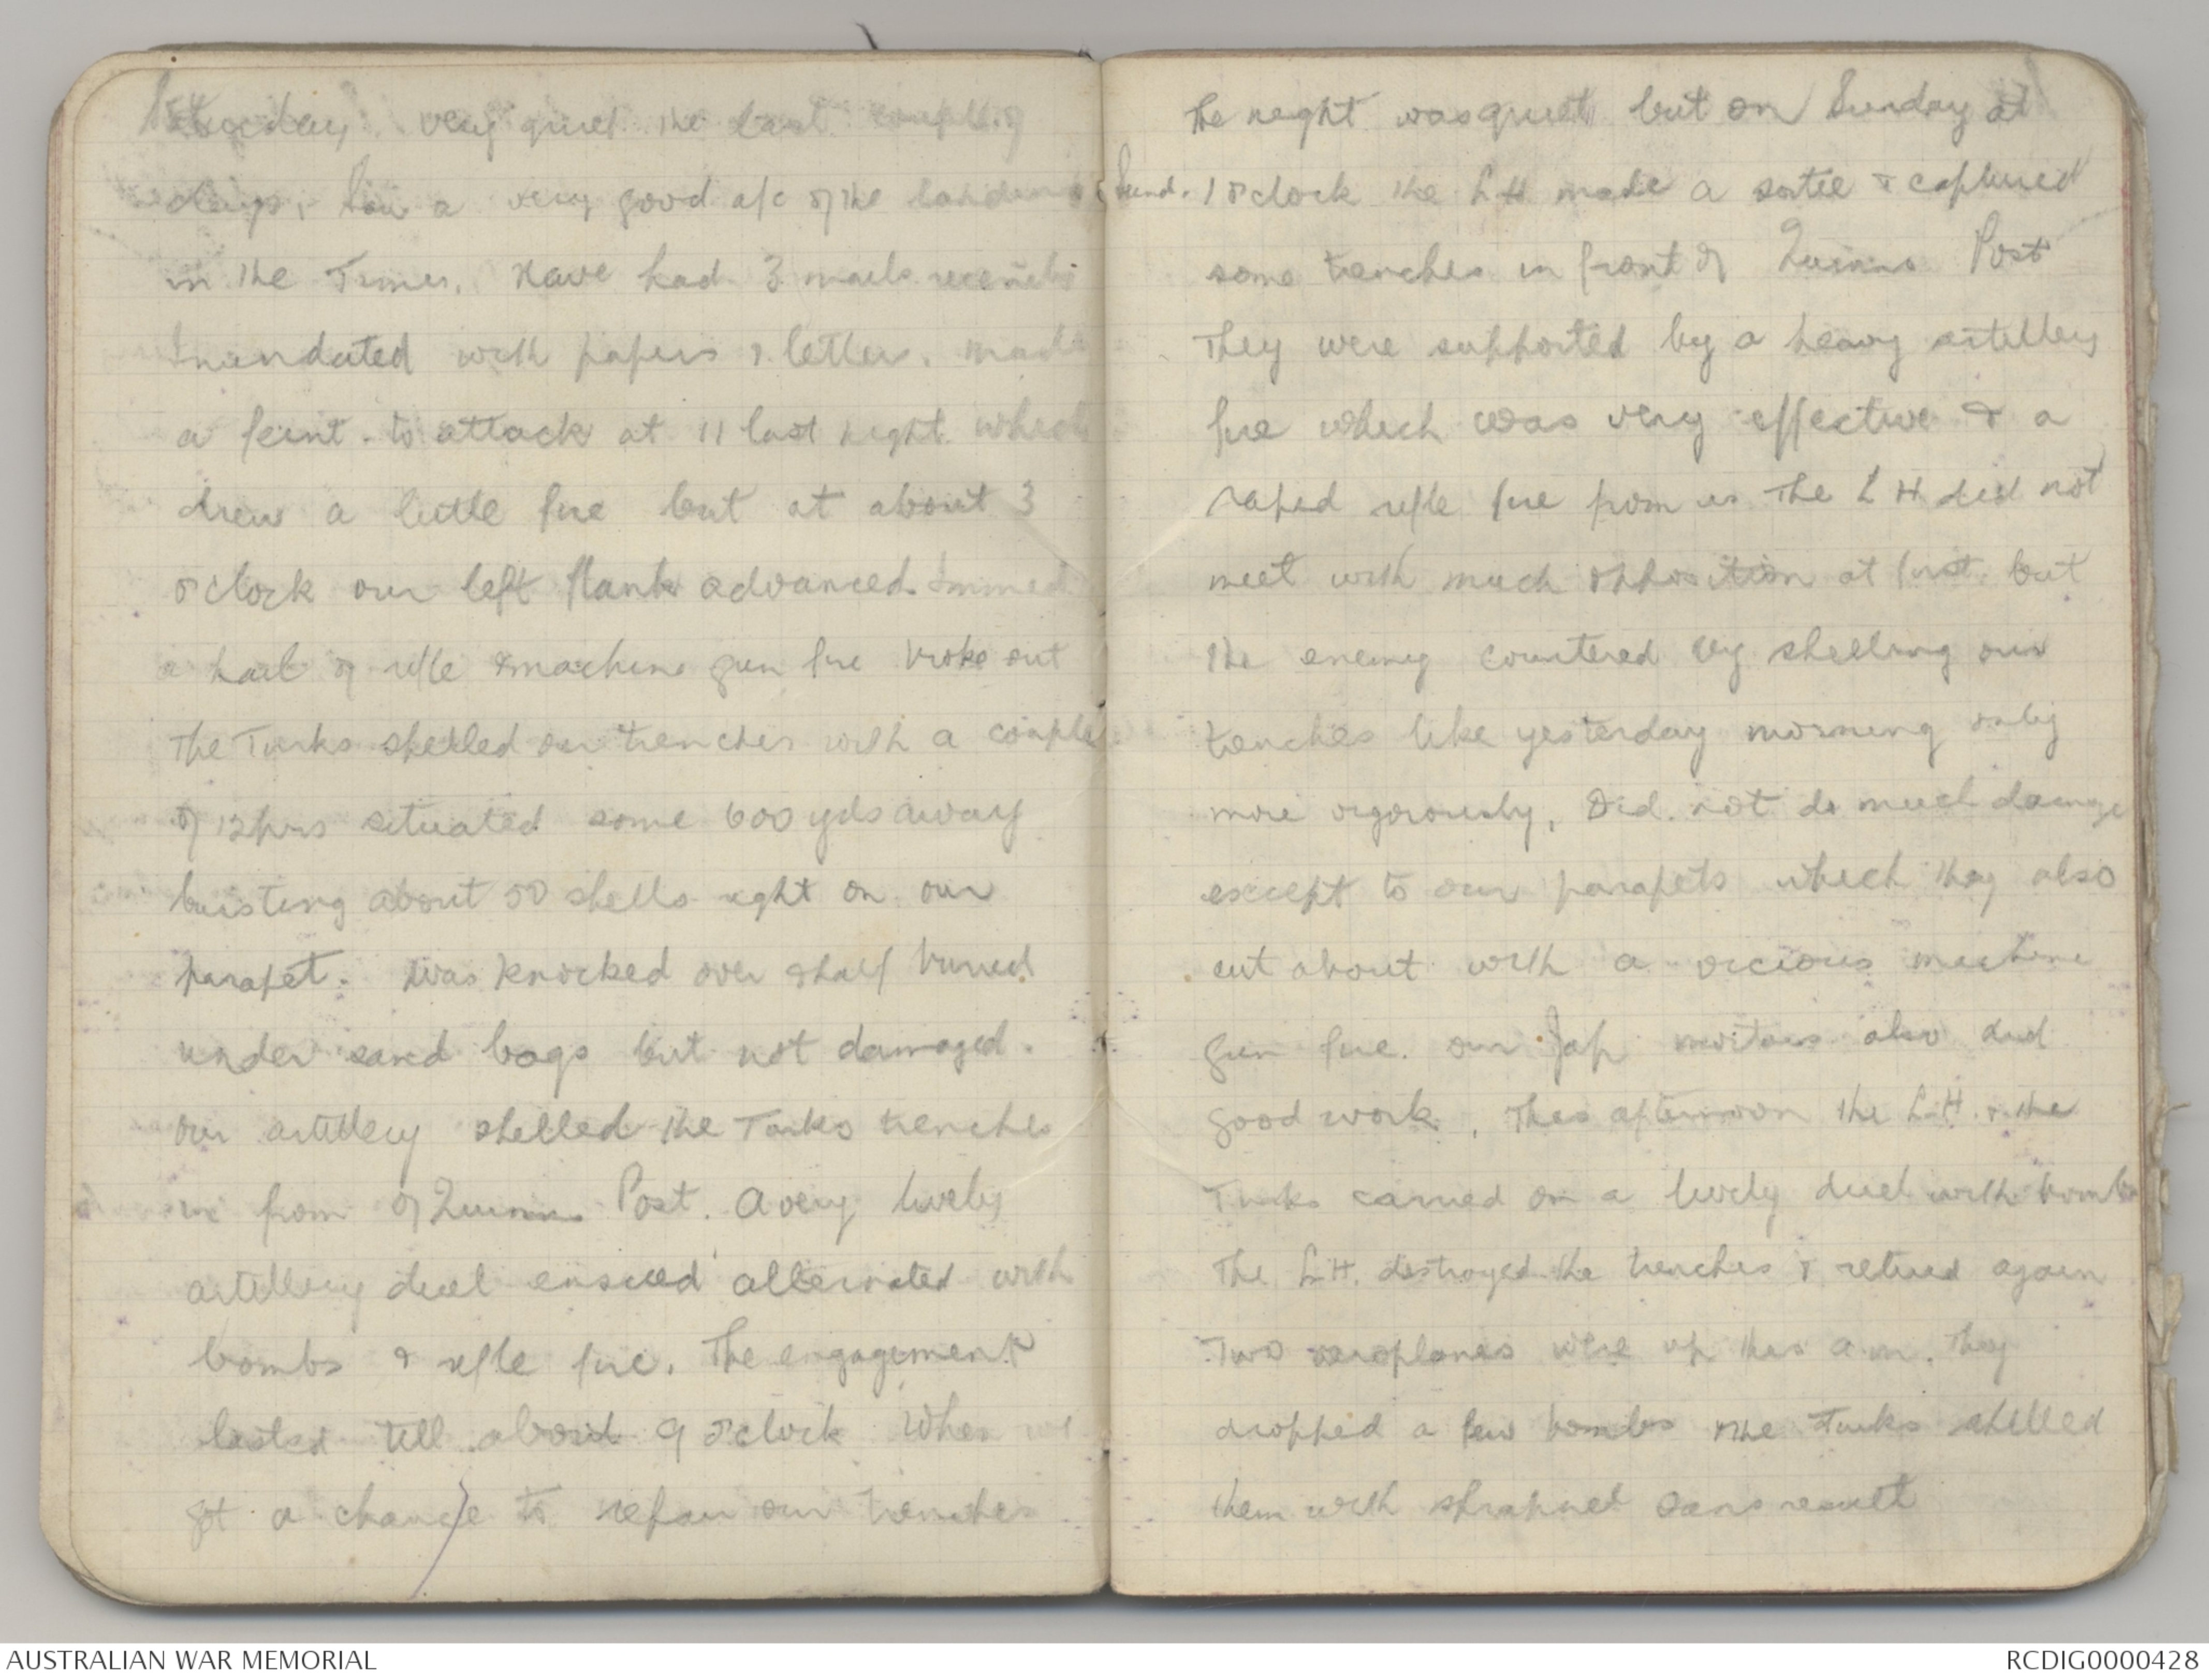 Saturday. very quiet the last couple of
days. Saw a very good a/c of the landing
in the Times. Have had 3 mails recently
Inundated with papers & letters. made
a feint to attack at 11 last night which
drew a little fire but at about 3
o'clock our left flank advanced. Immed
a hail of rifle & machine gun fire broke out
The Turks shelled our trenches with a couple
of 12 pdrs situated some 600 yds away
bursting about 50 shells right on our
parapet. Was knocked over & half buried
under sand bags but not damaged.
Our artillery shelled the Turks trenches
in from of Quinns Post. A very lively
artillery duel ensued alternated with
bombs & rifle fire. The engagement
lasted till about 9 o'clock When we
got a chance to repair our trenches
The night was quiet but on Sunday at
Sund. 1 o'clock the LH made a sortee & captured
some trenches in front of Quinns Post
They were supported by a heavy artillery
fire which was very effective & a
rapid rifle fire from us The L H did not
meet with much opposition at first but
the enemy countered by shelling our
trenches like yesterday morning only
more vigorously, Did not do much damage
except to our parapets which they also
cut about with a vicious machine
gun fire. Our Jap mortars also did
good work. This afternoon the L.H. & the
Turks carried on a lively duel with bombs
The L.H. destroyed the trenches & retired again
Two aeroplanes were up this a.m. They
dropped a few bombs & the Turks shelled
them with shrapnel sans result
AUSTRALIAN WAR MEMORIAL
RCDIG0000428